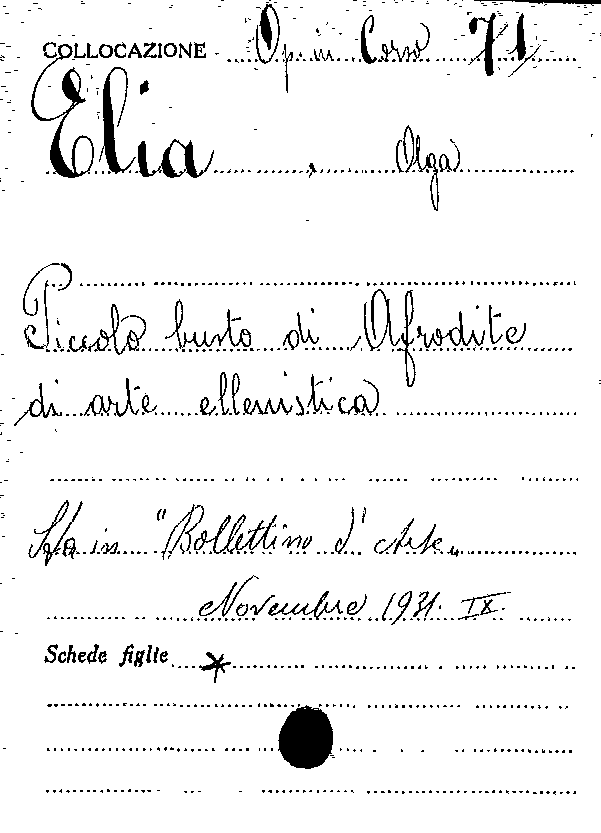 COLLOCAZIONE Op. in Corso 71
Elia, Olga
Piccolo busto di Afrodite
di arte ellenistica
Sta in "Bollettino d'Arte„
Novembre 1931. IX.
Schede figlie *